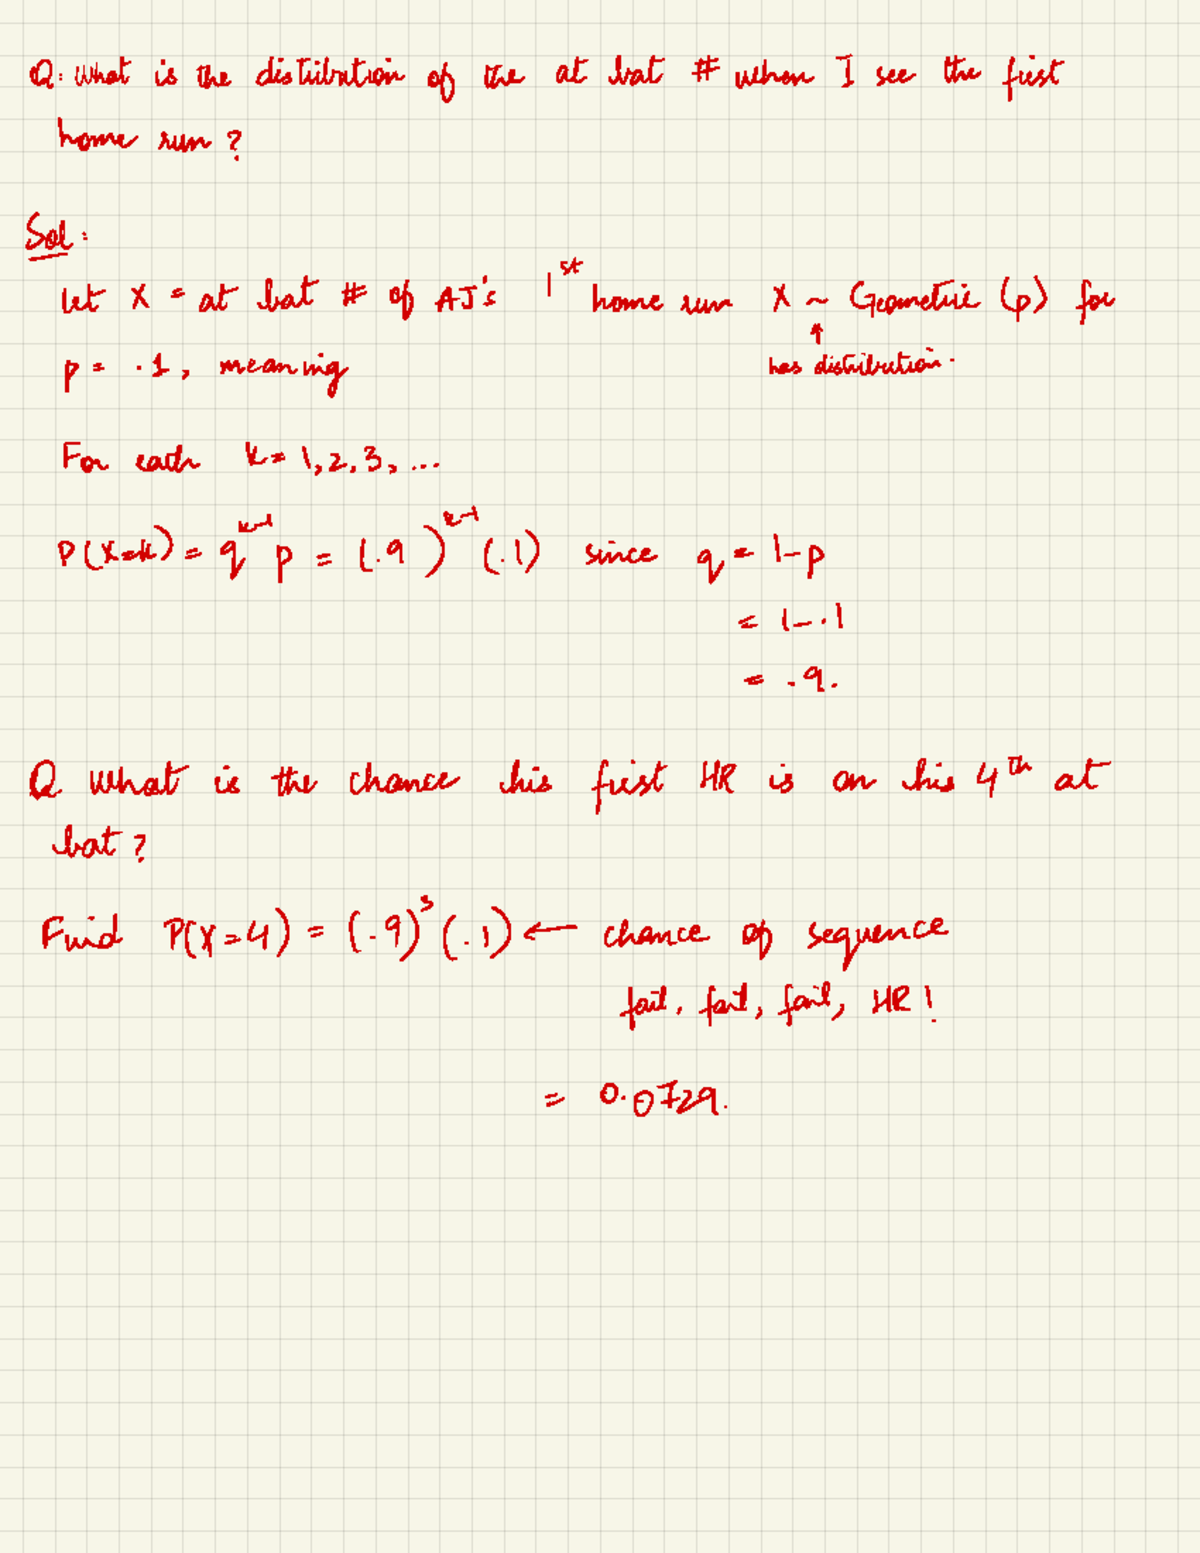 Q. What is the distribution of the at bat # when I see the first
home run ?
Sol:
let X = at bat # of AJ's 1st home run X ~ Geometric (p) for
↑
p = .1, meaning has distribution.
For each k = 1, 2, 3, ...
P(X=k) = q^{k-1} p = (.9)^{k-1} (.1) since q = 1-p
= 1-.1
= .9.
Q. What is the chance his first HR is on his 4th at
bat ?
Find P(X=4) = (.9)^3 (.1) ← chance of sequence
fail, fail, fail, HR!
= 0.0729.